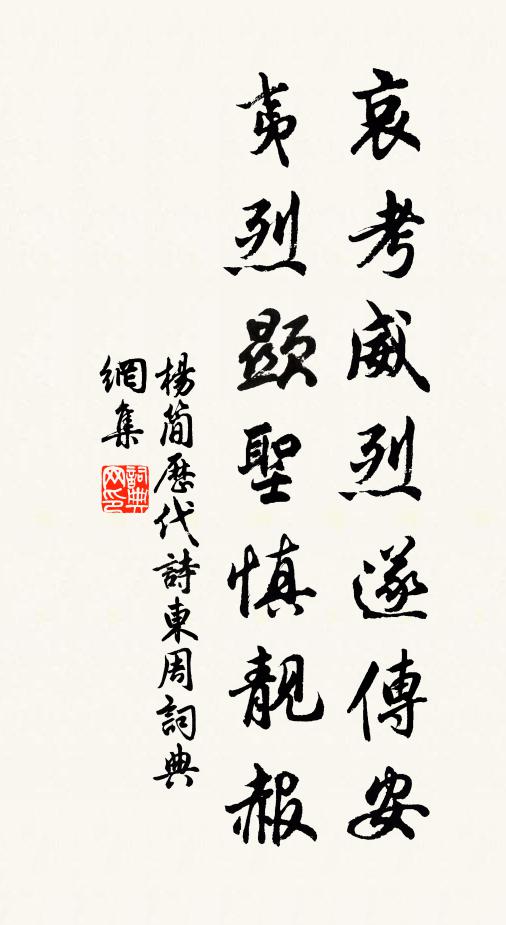 哀考威烈遂傳安
夷烈顯聖慎靚赧
楊簡歷代詩東周詞典
網集
詞典
網印